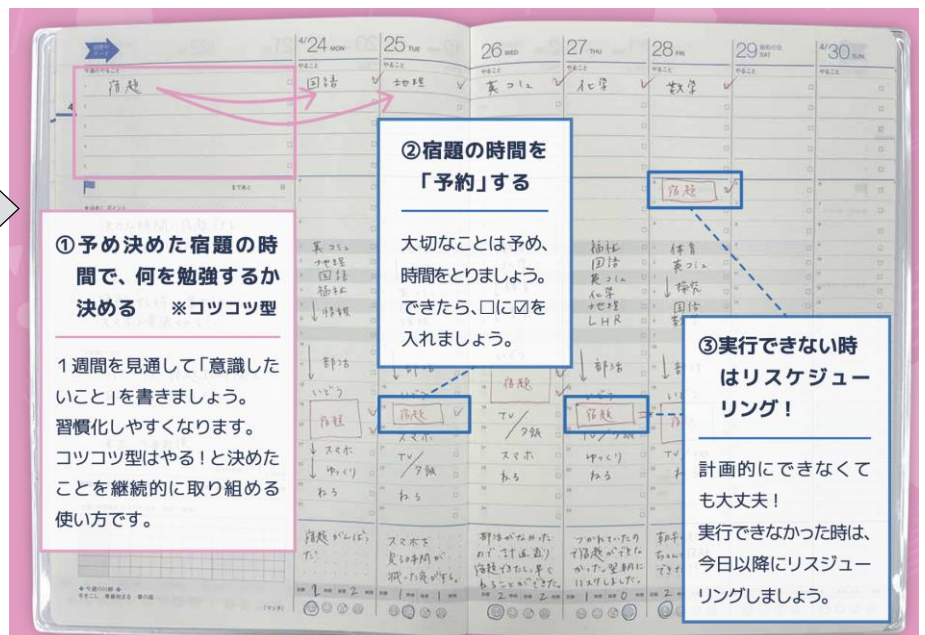 4/24 MON
25 TUE
26 WED
27 THU
28 FRI
29 昭和の日 SAT
4/30 SUN
今週のやること
やること
やること
やること
やること
やること
やること
やること
宿題
国語
地理
英コミ
化学
数学
①予め決めた宿題の時
間で、何を勉強するか
決める ※コツコツ型
１週間を見通して「意識した
いこと」を書きましょう。
習慣化しやすくなります。
コツコツ型はやる！と決めた
ことを継続的に取り組める
使い方です。
②宿題の時間を
「予約」する
大切なことは予め、
時間をとりましょう。
できたら、□に☑を
入れましょう。
③実行できない時
はリスケジュー
リング！
計画的にできなくて
も大丈夫！
実行できなかった時は、
今日以降にリスジュー
リングしましょう。
英コミ
地理
国語
福祉
情報
部活
いどう
宿題
スマホ
ゆっくり
ねる
宿題
スマホ
TV
夕飯
ねる
宿題
TV
夕飯
スマホ
ねる
福祉
国語
英コミ
化学
地理
LHR
部活
いどう
宿題
TV/夕飯
ゆっくり
ねる
宿題
体育
英コミ
探究
国語
いどう
宿題がんばっ
た!
スマホを
見る時間が
減った気がする。
部活がなかった
ので計画通り
宿題できたし、早く
ねることができた。
つかれていたの
で宿題ができな
かった。翌朝に
リスケしました。
1 2
1 1
2 2
1 0
2